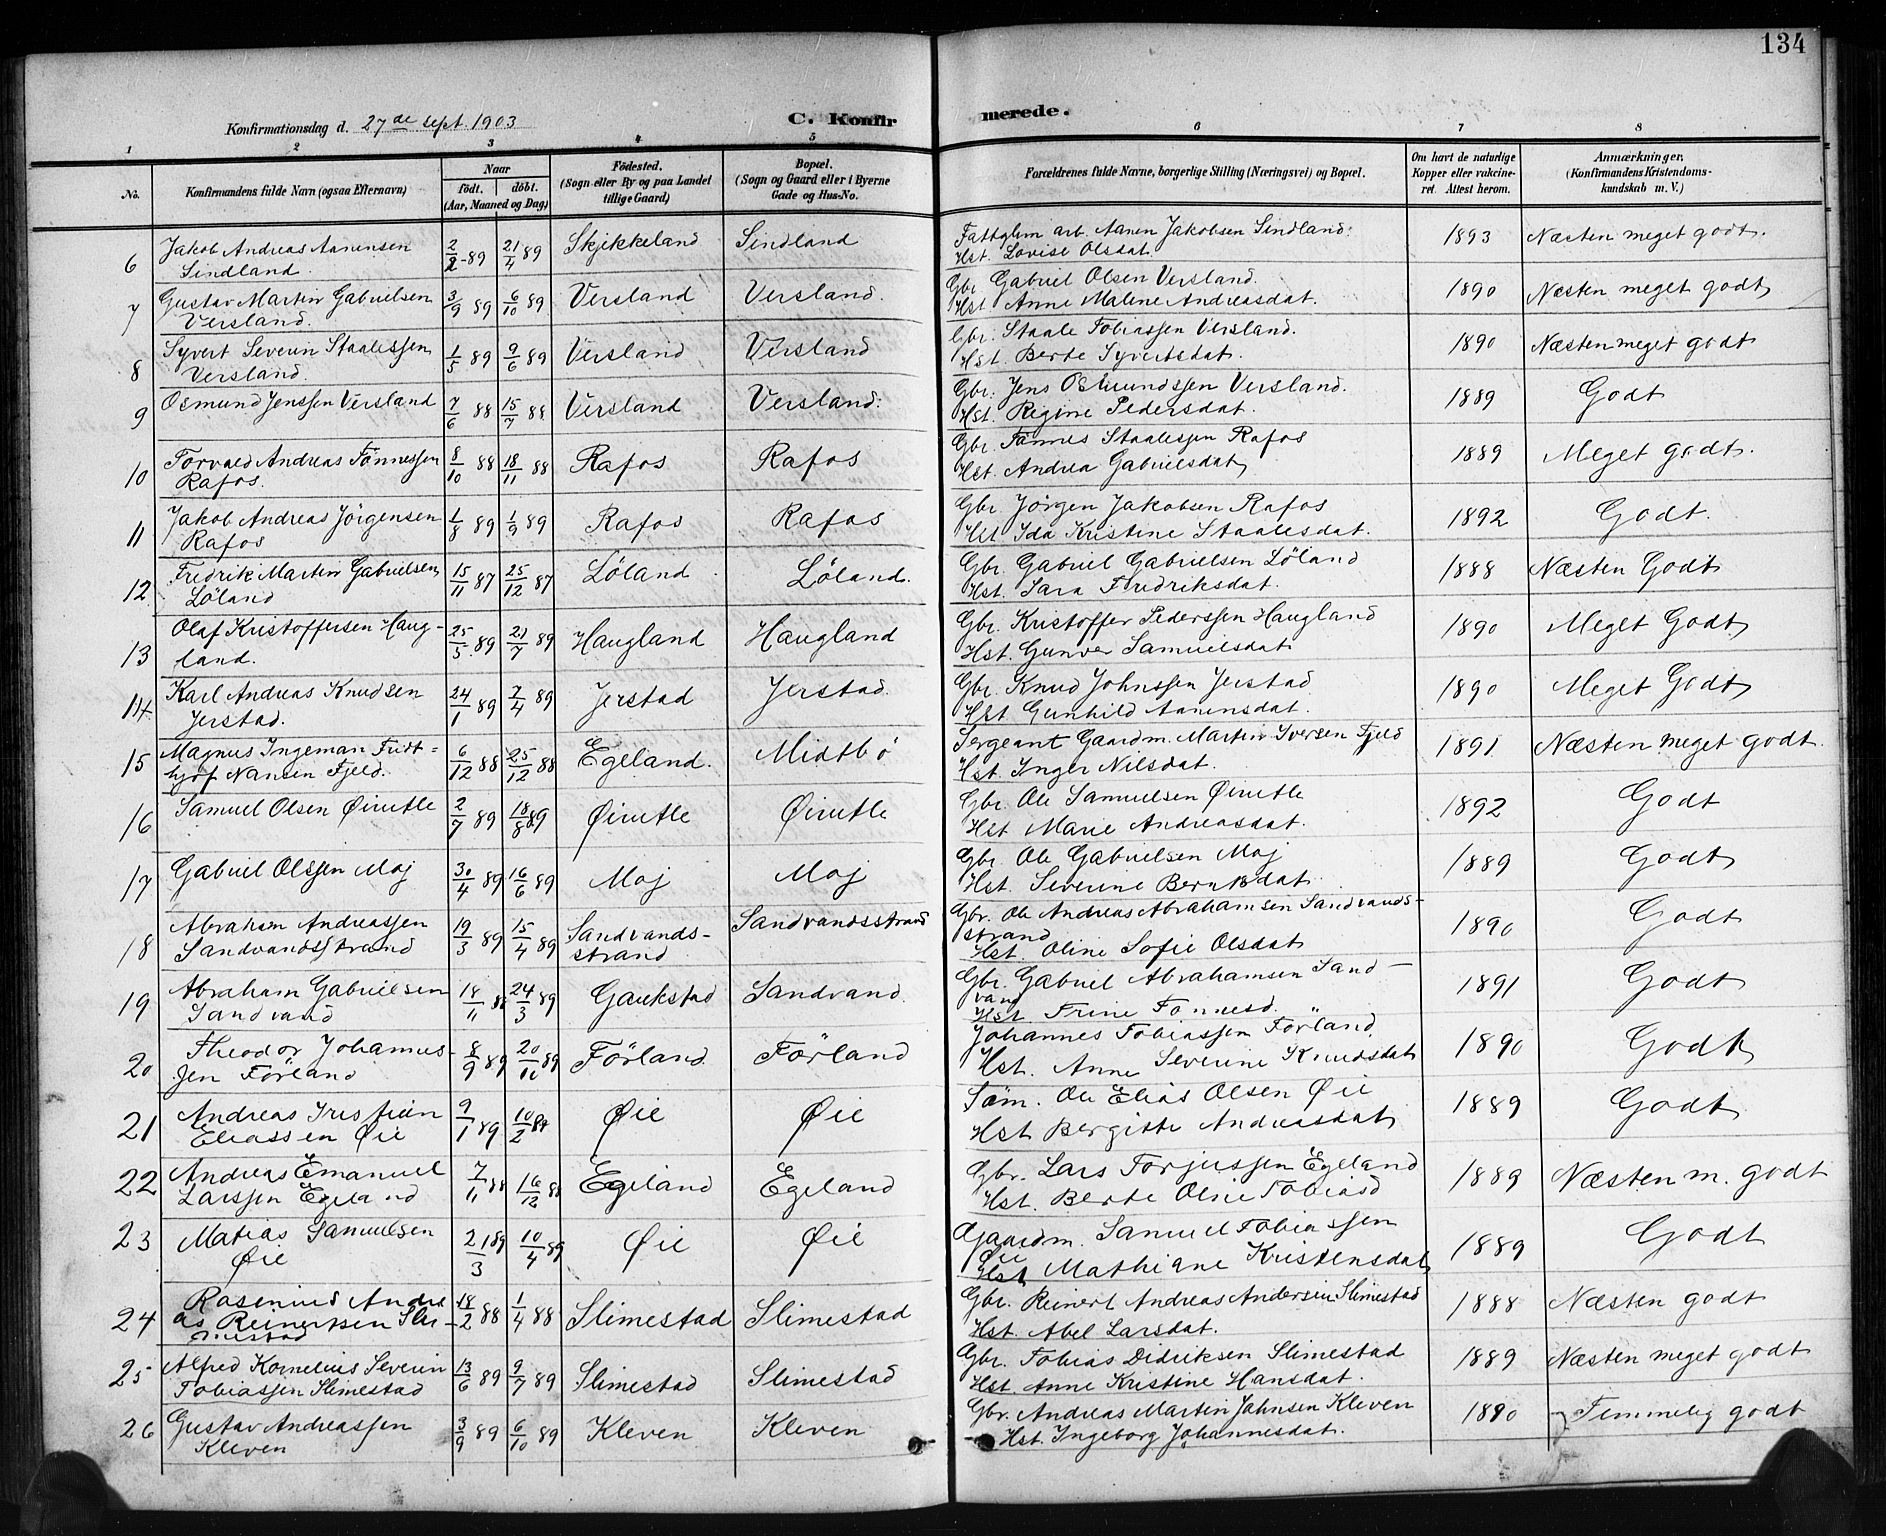 134
Konfirmationsdag d. 27de sept. 1903
C. Konfir
merede.
1 2 3 4 5 6 7 8
No.
Konfirmandens fulde Navn (ogsaa Efternavn)
Naar
født. døbt.
(Aar, Maaned og Dag)
Fødested.
(Sogn eller By og paa Landet
tillige Gaard)
Bopæl.
(Sogn og Gaard eller i Byerne
Gade og Hus-No.
Forældrenes fulde Navne, borgerlige Stilling (Næringsvei) og Bopæl.
Om havt de naturlige
Kopper eller vakcine-
ret. Attest herom.
Anmærkninger.
(Konfirmandens Kristendoms-
kundskab m. V.)
6 Jakob Andreas Aanensen 2/2 - 89 21/4 89 Skjekkeland Sindland Fattglem arb. Aanen Jakobsen Sindland. 1893 Næsten meget godt.
Sindland. Hst. Lovise Olsdat.
7 Gustav Martin Gabrielsen 3/9 89 6/10 89 Versland Versland. Gbr Gabriel Olsen Versland. 1890 Næsten meget godt
Versland. Hst Anne Malene Andreasdat.
8 Syvert Severin Staalessen 1/5 89 9/6 89 Versland Versland Gbr. Staale Tobiassen Versland. 1890 Næsten meget godt
Versland. Hst. Berte Syvertsdat.
9 Osmund Jenssen Versland 7/6 88 15/7 88 Versland Versland. Gbr. Jens Osmundssen Versland. 1889 Godt
Hst. Regine Pedersdat.
10 Torvald Andreas Tönnessen 8/10 88 18/11 88 Rafos Rafos Gbr. Tönnes Staalessen Rafos 1889 Meget godt.
Rafos. Hst. Andrea Gabrielsdat
11 Jakob Andreas Jörgensen 1/8 89 1/9 89 Rafos Rafos Gbr Jörgen Jakobsen Rafos 1892 Godt.
Rafos Hst Ida Kristine Staalesdat.
12 Fredrik Martin Gabrielsen 15/11 87 25/12 87 Löland Löland. Gbr. Gabriel Gabrielsen Löland 1888 Næsten Godt
Löland Hst. Sara Fredriksdat.
13 Olaf Kristoffersen Haug- 25/5 89 21/7 89 Haugland Haugland Gbr. Kristoffer Pederssen Haugland 1890 Meget Godt
land. Hst. Gunver Samuelsdat
14 Karl Andreas Knudsen 24/1 89 7/4 89 Jerstad Jerstad. Gbr. Knud Johnssen Jerstad 1890 Meget Godt
Jerstad. Hst Gunhild Aanensdat.
15 Magnus Ingeman Fridt= 6/12 88 25/12 88 Egeland. Midtbö Sergeant Gaardm. Martin Iversen Fjeld 1891 Næsten meget godt.
hjof Nansen Fjeld. Hst. Inger Nilsdat.
16 Samuel Olsen Øirutle 2/7 89 18/8 89 Øirutle Øirutle Gbr. Ole Samuelsen Øirutle 1892 Godt
Hst Marie Andreasdat.
17 Gabriel Olssen Moj 30/4 89 16/6 89 Moj Moj Gbr Ole Gabrielsen Moj 1889 Godt
Hst. Severine Berntsdat
18 Abraham Andreassen 19/3 89 15/4 89 Sandvands- Sandvandsstrand Gbr. Ole Andreas Abrahamsen Sandvands- 1890 Godt
Sandvandsstrand strand strand
Hst. Oline Sofie Olsdat
19 Abraham Gabrielsen 18/11 88 24/3 89 Gaukstad Sandvand. Gbr. Gabriel Abrahamsen Sand- 1891 Godt
Sandvand vand
Hst Trine Tönnesd.
20 Theodor Johannes- 8/9 89 20/10 89 Förland Förland Johannes Tobiassen Förland 1890 Godt
sen Förland Hst. Anne Severine Knudsdat
21 Andreas Kristian 9/1 89 10/2 89 Øie Øie Søm. Ole Elias Olsen Øie 1889 Godt
Eliassen Øie Hst Bergitte Andreasdat
22 Andreas Emanuel 7/11 88 16/12 88 Egeland Egeland Gbr. Lars Torjussen Egeland 1889 Næsten m. godt
Larssen Egeland Hst. Berte Olene Tobiasd
23 Matias Samuelsen 21/3 89 10/4 89 Øie Øie Gaardm. Samuel Tobiassen 1889 Godt
Øie Øie
Hst Mathiane Kristensdat
24 Rasenius Andre 18/2 88 1/4 88 Slimestad Slimestad Gbr. Reinert Andreas Andersen Slimestad 1888 Næsten godt
as Reinertsen Sli- Hst. Abel Larsdat.
mestad
25 Alfred Kornelius Severin 13/6 89 9/7 89 Slimestad Slimestad Gbr. Tobias Didriksen Slimestad 1889 Næsten meget godt
Tobiassen Slimestad Hst. Anne Kristine Hansdat.
26 Gustav Andreassen 3/9 89 6/10 89 Kleven Kleven Gbr. Andreas Martin Johnsen Kleven 1890 Temmelig godt
Kleven Hst. Ingeborg Johannesdat.